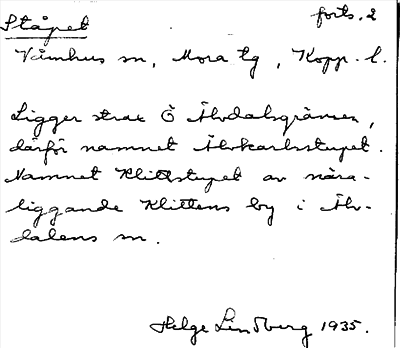 Ståpet
forts. 2
Våmhus sn, Mora tg, Kopp. l.
Ligger strax Ö Älvdalsgränsen,
därför namnet Älvkarlsstupet.
Namnet Klittstupet av nära-
liggande Klittens by i Älv-
dalens sn.
Helge Lindberg 1935.